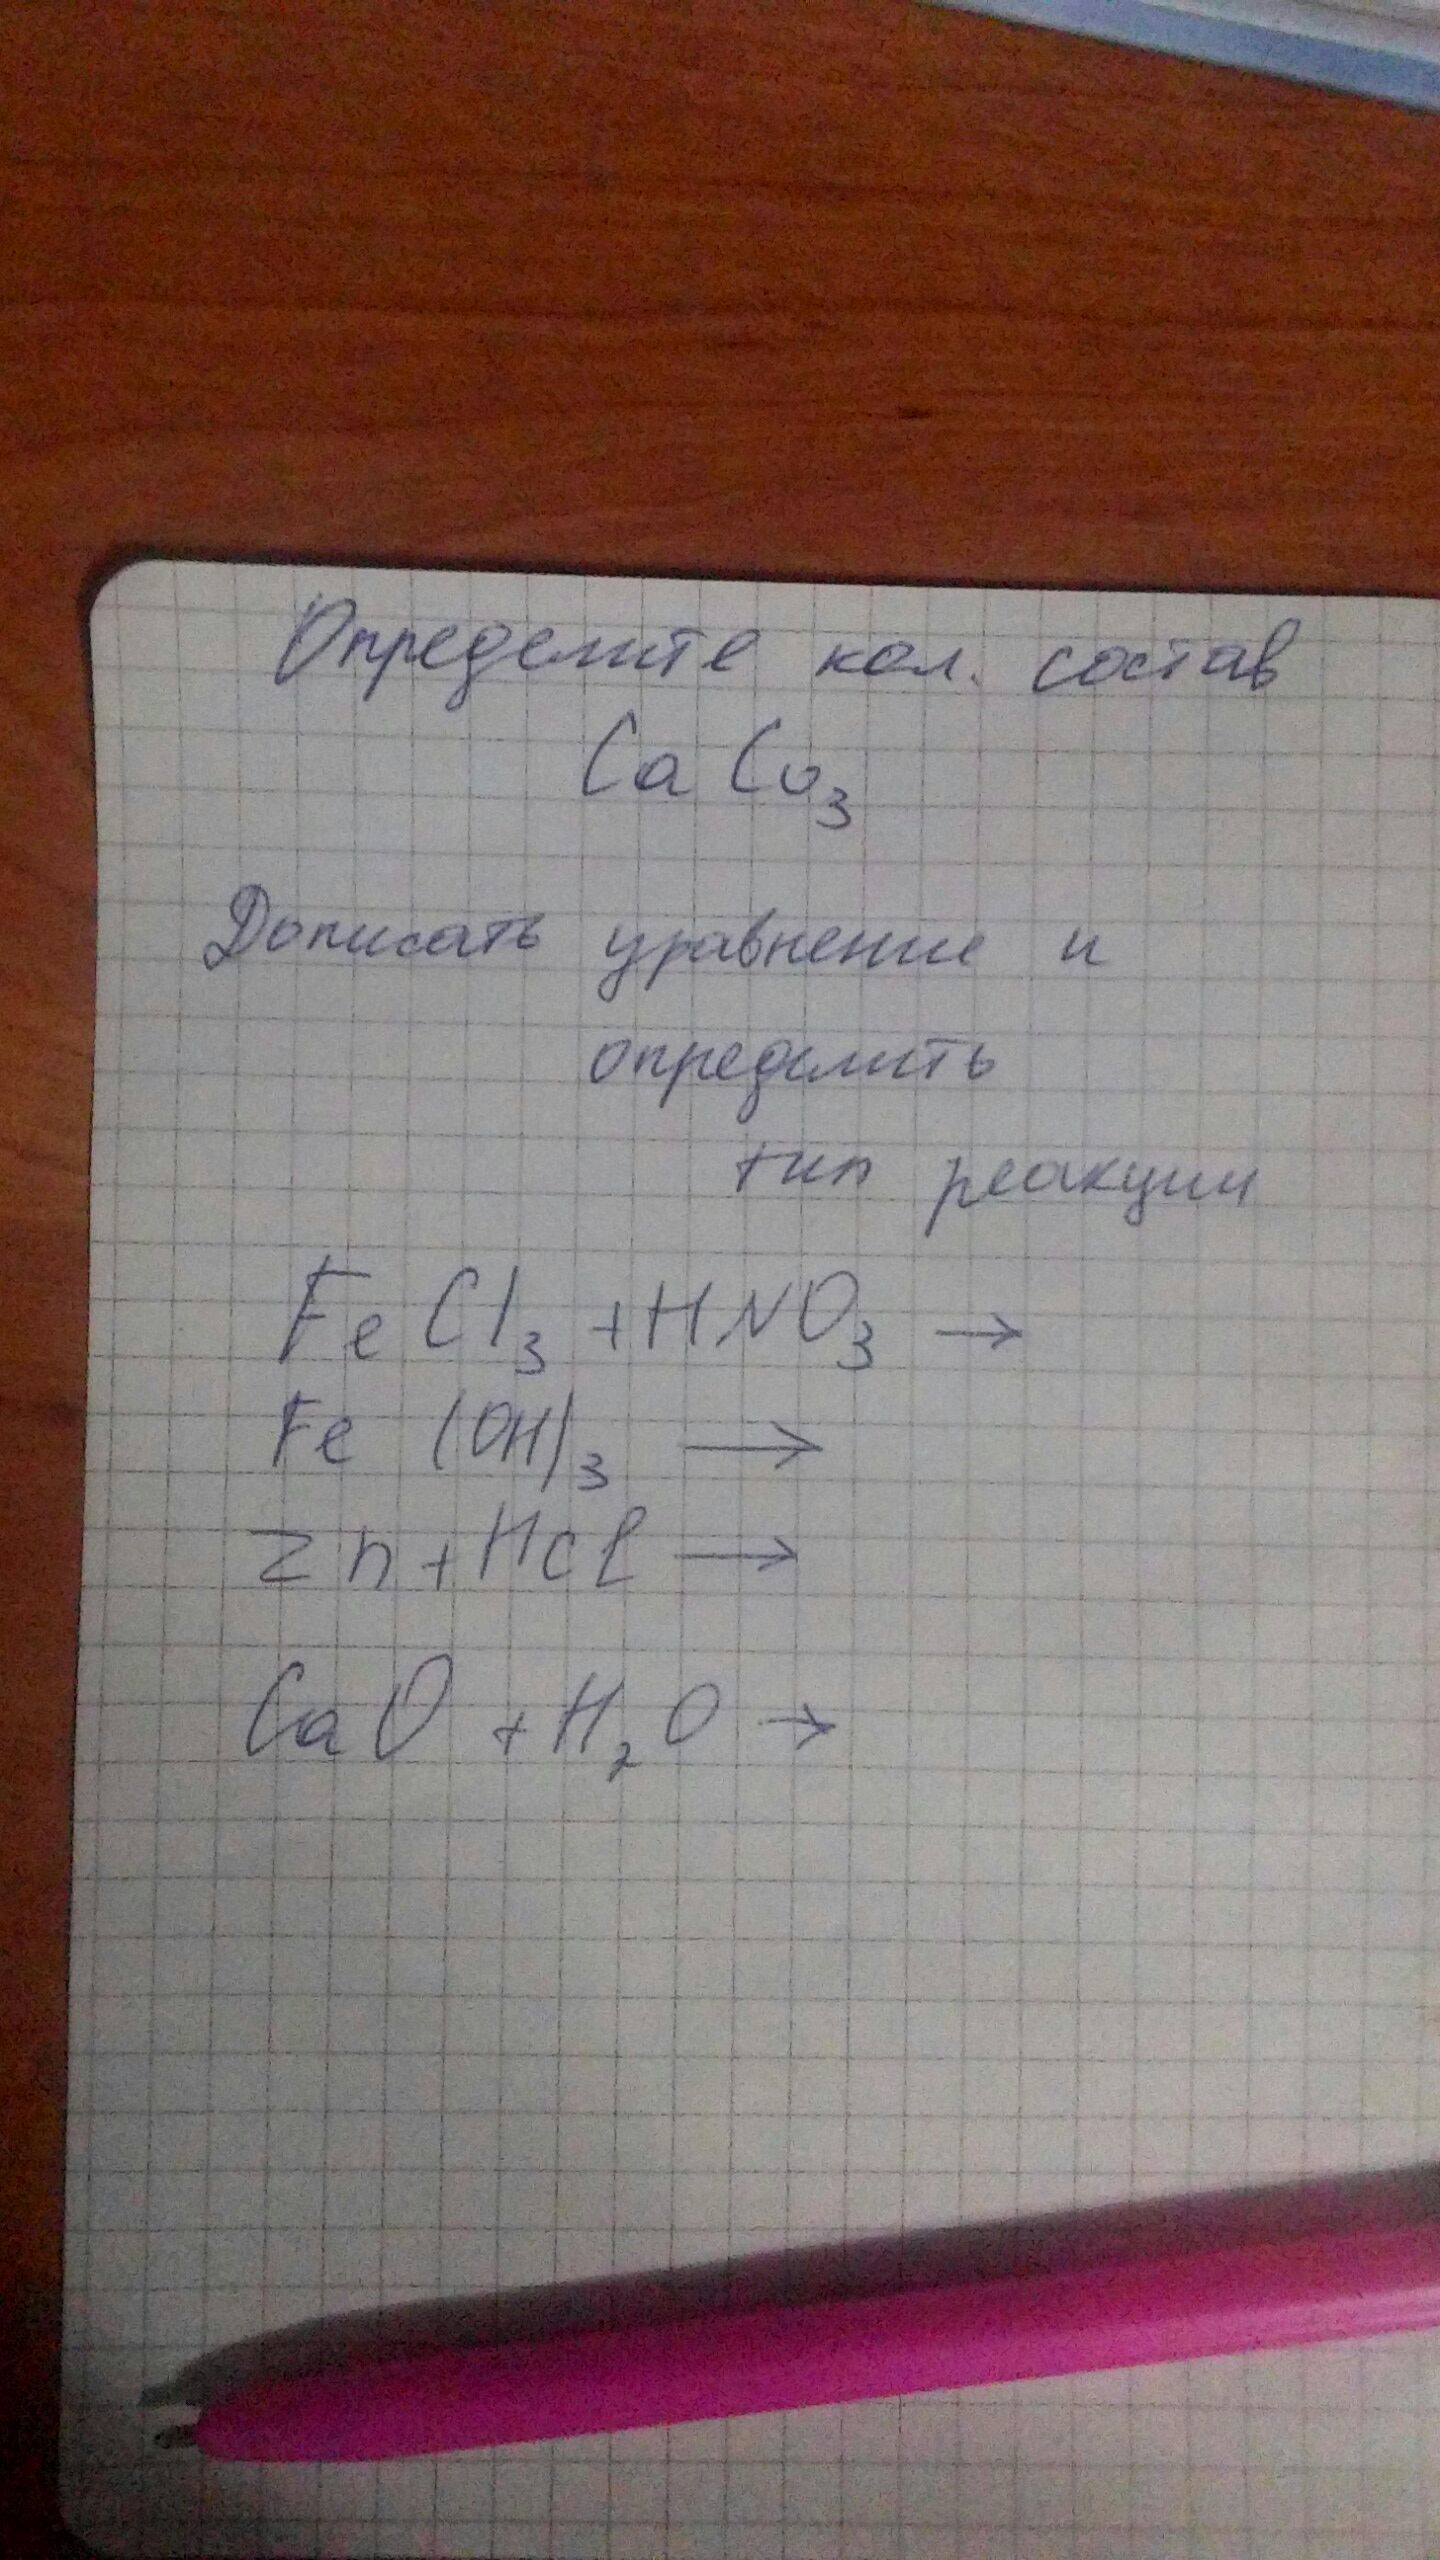 Определите кол. состав
CaCo₃
Дописать уравнение и
определить
тип реакции
FeCl₃ + HNO₃ →
Fe (OH)₃ →
Zn + HCl →
CaO + H₂O →